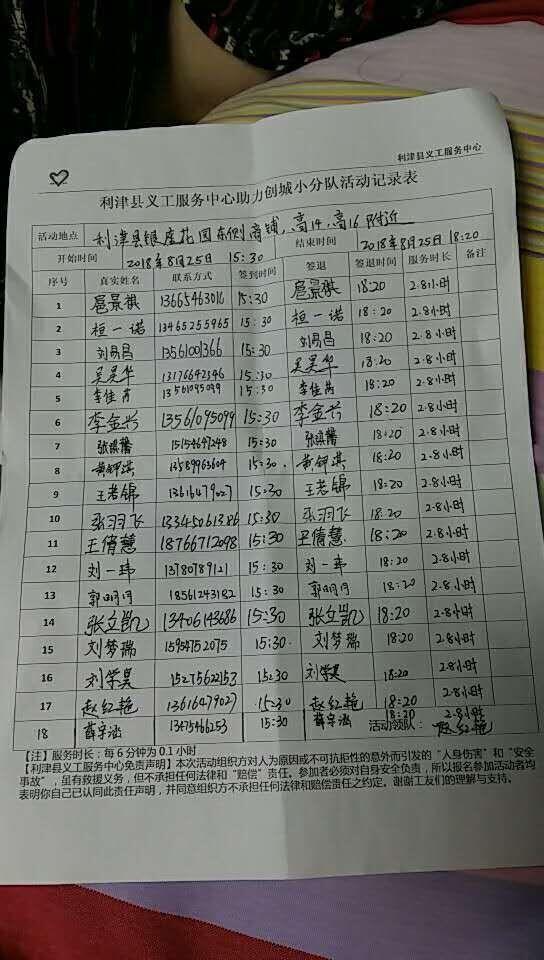 利津县义工服务中心
利津县义工服务中心助力创城小分队活动记录表
活动地点 利津县银座花园东侧商铺，高14，高16附近
开始时间 2018年8月25日 15:30 结束时间 2018年8月25日 18:20
序号 真实姓名 联系方式 签到时间 签退 签退时间 服务时长 备注
1 扈景祺 13665463016 15:30 扈景祺 18:20 2.8小时
2 桓一诺 13465255965 15:30 桓一诺 18:20 2.8小时
3 刘易昌 13561001366 15:30 刘易昌 18:20 2.8小时
4 吴昊华 13176642346 15:30 吴昊华 18:20 2.8小时
5 李佳芮 13561095099 15:30 李佳芮 18:20 2.8小时
6 李金兴 13561095099 15:30 李金兴 18:20 2.8小时
7 15154647248 15:30 18:20 2.8小时
8 黄钾淇 13589963604 15:30 黄钾淇 18:20 2.8小时
9 王老锦 13616479027 15:30 王老锦 18:20 2.8小时
10 张羽飞 13345061386 15:30 张羽飞 18:20 2.8小时
11 王倩慧 18766712098 15:30 王倩慧 18:20 2.8小时
12 刘一玮 13780789121 15:30 刘一玮 18:20 2.8小时
13 郭明月 18561243182 15:30 郭明月 18:20 2.8小时
14 张立凯 13406143686 15:30 张立凯 18:20 2.8小时
15 刘梦瑞 15954752075 15:30 刘梦瑞 18:20 2.8小时
16 刘学昊 15275622153 15:30 刘学昊 18:20 2.8小时
17 赵红艳 13616479027 15:30 赵红艳 18:20 2.8小时
18 薛宇涵 13475466253 15:30 薛宇涵 18:20 2.8小时
活动领队：赵红艳
【注】服务时长：每6分钟为0.1小时
【利津县义工服务中心免责声明】本次活动组织方对人为原因或不可抗拒性的意外而引发的“人身伤害”和“安全
事故”，虽有救援义务，但不承担任何法律和“赔偿”责任。参加者必须对自身安全负责，所以报名参加活动者均
表明你自己已认同此责任声明，并同意组织方不承担任何法律和赔偿责任之约定。谢谢工友们的理解与支持。